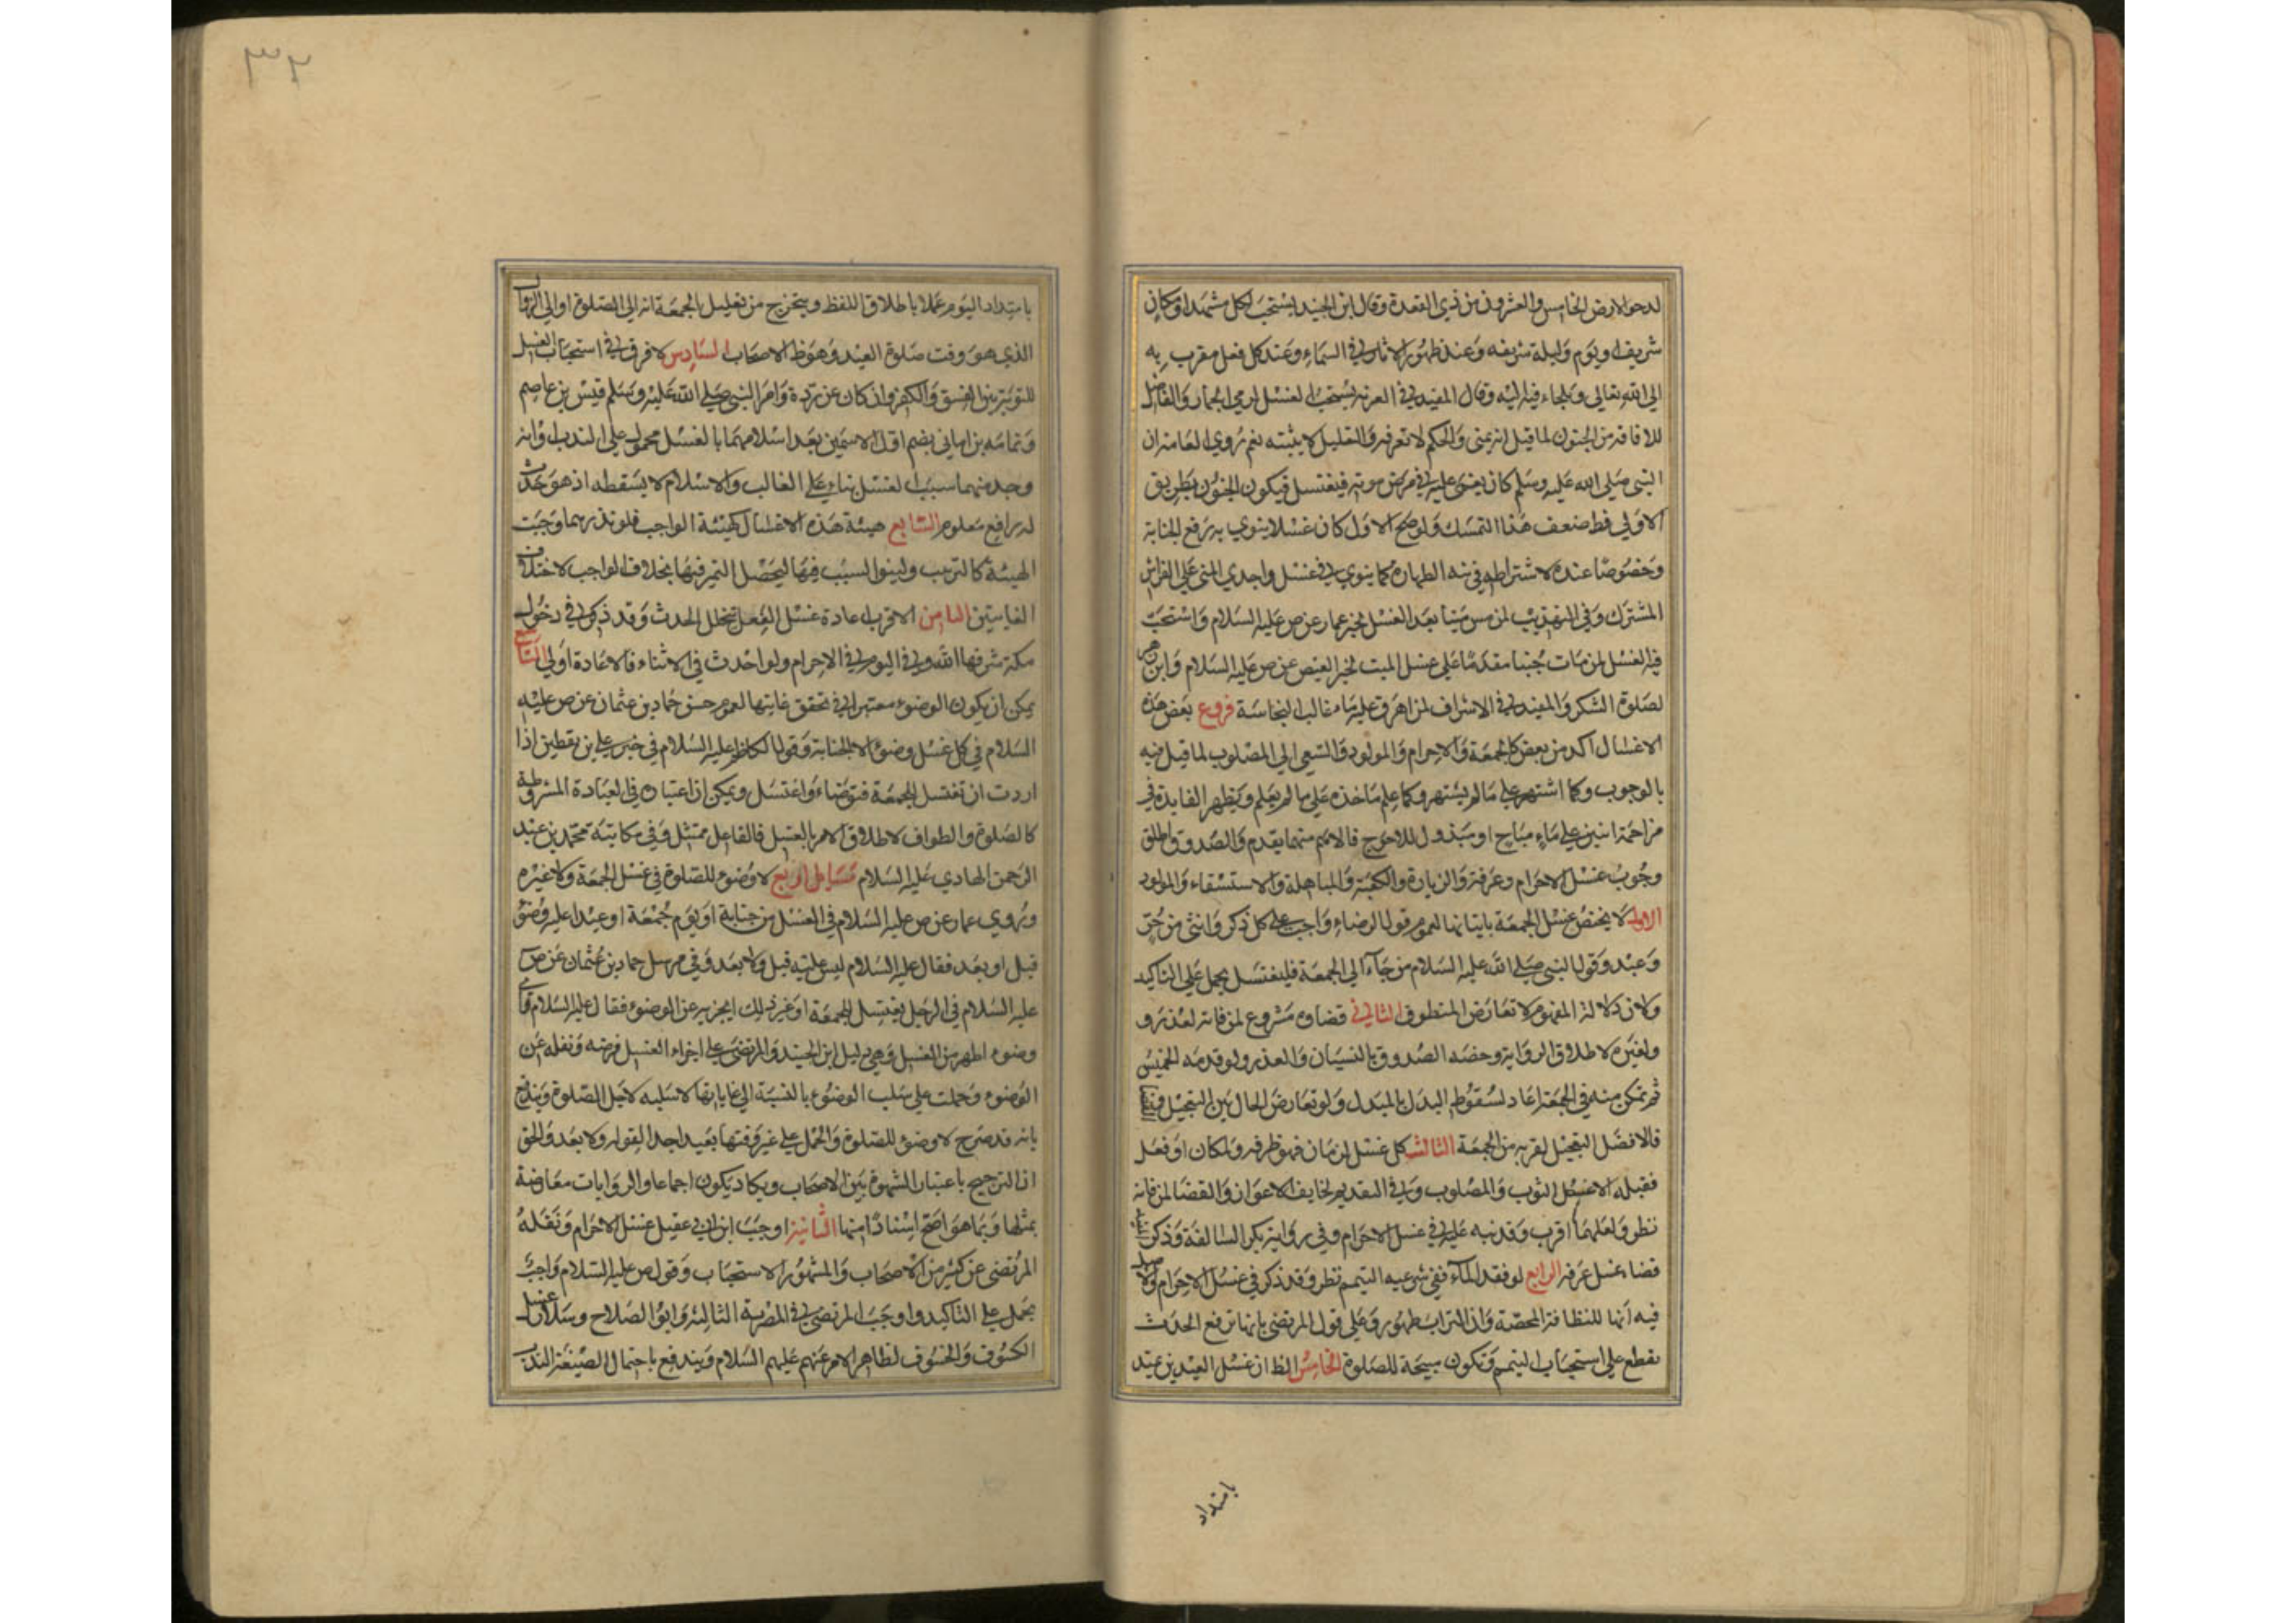 لدحو الارض الخامس والعشرون من ذي القعدة وقال ابن الجنيد يستحب لكل مشهد او مكان
شريف او يوم وليلة شريفه وعند ظهور الاثار في السماء وعند كل فعل مقرب به
الي الله تعالي ويلجاء فيه اليه وقال المفيد في العزيه يستحب الغسل لرمي الجمار والفاضل
للافاقه من الجنون لما قيل انه يمني والحكم لا نعرفه والتعليل لا يثبته نعم روي العامه ان
النبي صلي الله عليه وسلم كان يغمي عليه في مرض موته فيغتسل فيكون الجنون بطريق
الاولي فط ضعف هذا التمسك ولو صح الاول كان غسلا ينوي به رفع الجنابة
وخصوصا عنده لاشتراطه في نيه الطهارة كما ينوي في غسل واجدي المني علي الفراش
المشترك وفي التهذيب لمن مس ميتا بعد الغسل لخبر عمار عن ص عليه السلام واستحب
فيه الغسل لمن مات جنبا مقدما علي غسل الميت لخبر العيص عن ص عليه السلام وابن زهره
لصلوة الشكر والمفيد في الاشراف لمن اهرق عليه ماء غالب النجاسة فروع بعض هذه
الاغسال اكد من بعض كالجمعة والاحرام والمولود والسعي الي المصلوب لما قيل فيه
بالوجوب وكما اشتهر علي ما لم يشتهر وكما علم ماخذه علي ما لم يعلم ويظهر الفايدة في
مزاحمة اثنين علي ماء مباح او مبذول للاحوج فالاهم منهما يقدم والصدوق اطلق
وجوب غسل الاحرام وعرفة والزيارة والكعبة والمباهلة والاستسقاء والمولود
الاول لا يختص غسل الجمعة باتيانها لعموم قول الرضاء واجب علي كل ذكر وانثي من حر
وعبد وقول النبي صلي الله عليه السلام من جاء الي الجمعة فليغتسل يحمل علي التاكيد
ولان دلالة المفهوم لا تعارض المنطوق الثاني قضاوه مشروع لمن فاته لعذر و
ولغيره لاطلاق الرواية وخصه الصدوق بالنسيان والعذر ولو قدمه الخميس
ثم تمكن منه في الجمعة اعاد لسقوط البدل بالمبدل ولو تعارض الحال بين التعجيل والقضا
فالافضل التعجيل لقربه من الجمعة الثالث كل غسل لزمان فهو ظرفه ولمكان او فعل
فقبله الا غسل التوب والمصلوب وفي التقديم لخايف الاعواز والقضا لمن فاته
نظر ولعلهما اقرب وقد نبه عليه في غسل الاحرام وفي رواية بكير السالفة وذكر المفيد
قضاء غسل عرفه الرابع لو فقد الماء ففي شرعيه التيمم نظر وقد ذكر في غسل الاحرام والاصل
فيه انها للنظافة المحضة وان التراب طهور وعلي قول المرتضي بانها ترفع الحدث
نقطع علي استحباب التيمم وتكون مبيحة للصلوة الخامس الظ ان غسل العيدين عتد
بامتداد
٣٢
بامتداد اليوم عملا باطلاق اللفظ ويتخرج من تعليل الجمعة انه الي الصلوة او الي الزوال
الذي هو وقت صلوة العيد وهو ظ الاصحاب السادس لا فرق في استحباب الغسل
للتوبة بين الفسق والكفر وان كان عن ردة وامر النبي صلي الله عليه وسلم قيس بن عاصم
وثمامه بن اماني بضم اول الاسمين بعد اسلامهما بالغسل محمول علي الندب او انه
وجد منهما سبب الغسل بناء علي الغالب والاسلام لا يسقطه اذ هو حدث
له رافع معلوم السابع هيئة هذه الاغسال كهيئة الواجب فلو نذرهما وجبت
الهيئة كالترتيب ولينو السبب فيها ليحصل التميز فيها بخلاف الواجب لاختلاف
الغايتين الثامن الاقرب اعادة غسل الفعل بتخلل الحدث وقد ذكر في دخول
مكة شرفها الله وفي النوم في الاحرام ولو احدث في الاثناء فالاعادة اولي التاسع
يمكن ان يكون الوضوء معتبرا في تحقق غايتها لعموم حسن حماد بن عثمان عن ص عليه
السلام في كل غسل وضوء الا الجنابة وقول الكاظم عليه السلام في خبر علي بن يقطين اذا
اردت ان تغتسل للجمعة فتوضاء واغتسل ويمكن ان اعتباره في العبادة المشروطة
كالصلوة والطواف لاطلاق الامر بالغسل فالفاعل ممتثل وفي مكاتبة محمد بن عبد
الرحمن الهادي عليه السلام مسايل اربع لا وضوء للصلوة في غسل الجمعة ولا غيره
وروي عمار عن ص عليه السلام في الغسل من جنابة او يوم جمعة او عيد اعليه وضوء
قبل او بعد فقال عليه السلام ليس عليه قبل ولا بعد وفي مرسل حماد بن عثمان عن ص
عليه السلام في الرجل يغتسل للجمعة او غير ذلك ايجزيه عن الوضوء فقال عليه السلام واي
وضوء اطهر من الغسل وهي دليل ابن الجنيد والمرتضي علي اجزاء الغسل فرضه ونفله عن
الوضوء وحملت علي سلب الوضوء بالنسبة الي غاياتها لا سلبه لاجل الصلوة ويندفع
بانه قد صرح لا وضوء للصلوة والحمل علي غير وقتها بعيد اجدا لقوله ولا بعد والحق
ان الترجيح باعتبار الشهرة بين الاصحاب ويكاد يكون اجماعا والروايات معارضة
بمثلها وبما هو اصح اسنادا منها الثانية اوجب ابن ابي عقيل غسل الاحرام ونقله
المرتضي عن كثير من الاصحاب والمشهور الاستحباب وقول ص عليه السلام واجب
يحمل علي التاكيد واوجب المرتضي في المصرية الثالثة وابو الصلاح وسلار غسل
الكسوف والخسوف لظاهر الامر عنهم عليهم السلام ويندفع باحتمال الصيغة الندب